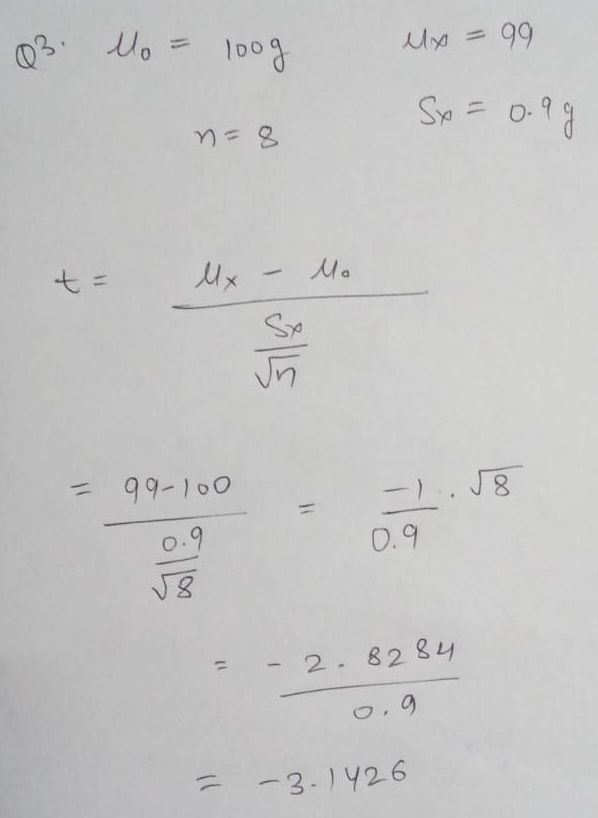 Q3. μ₀ = 100g μx = 99
n = 8 Sx = 0.9g
t = μx - μ₀
Sx
√n
= 99-100 = -1 . √8
0.9 0.9
√8
= - 2.8284
0.9
= -3.1426